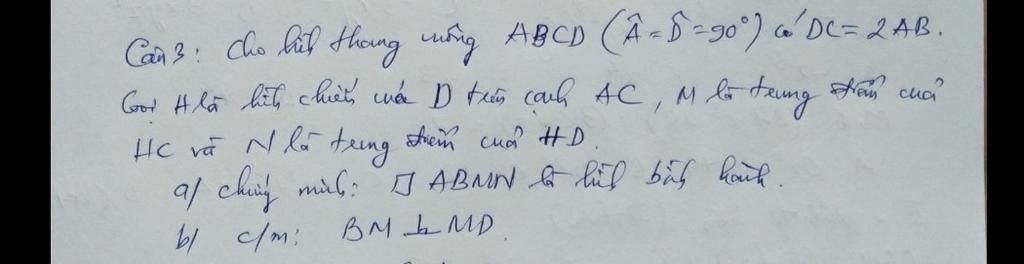 Câu 3: Cho hình thang vuông ABCD (Â = D̂ = 90°) có DC = 2AB.
Gọi H là hình chiếu của D trên cạnh AC, M là trung điểm của
HC và N là trung điểm của HD.
a/ chứng minh: ▱ ABMN là hình bình hành.
b/ c/m: BM ⊥ MD.